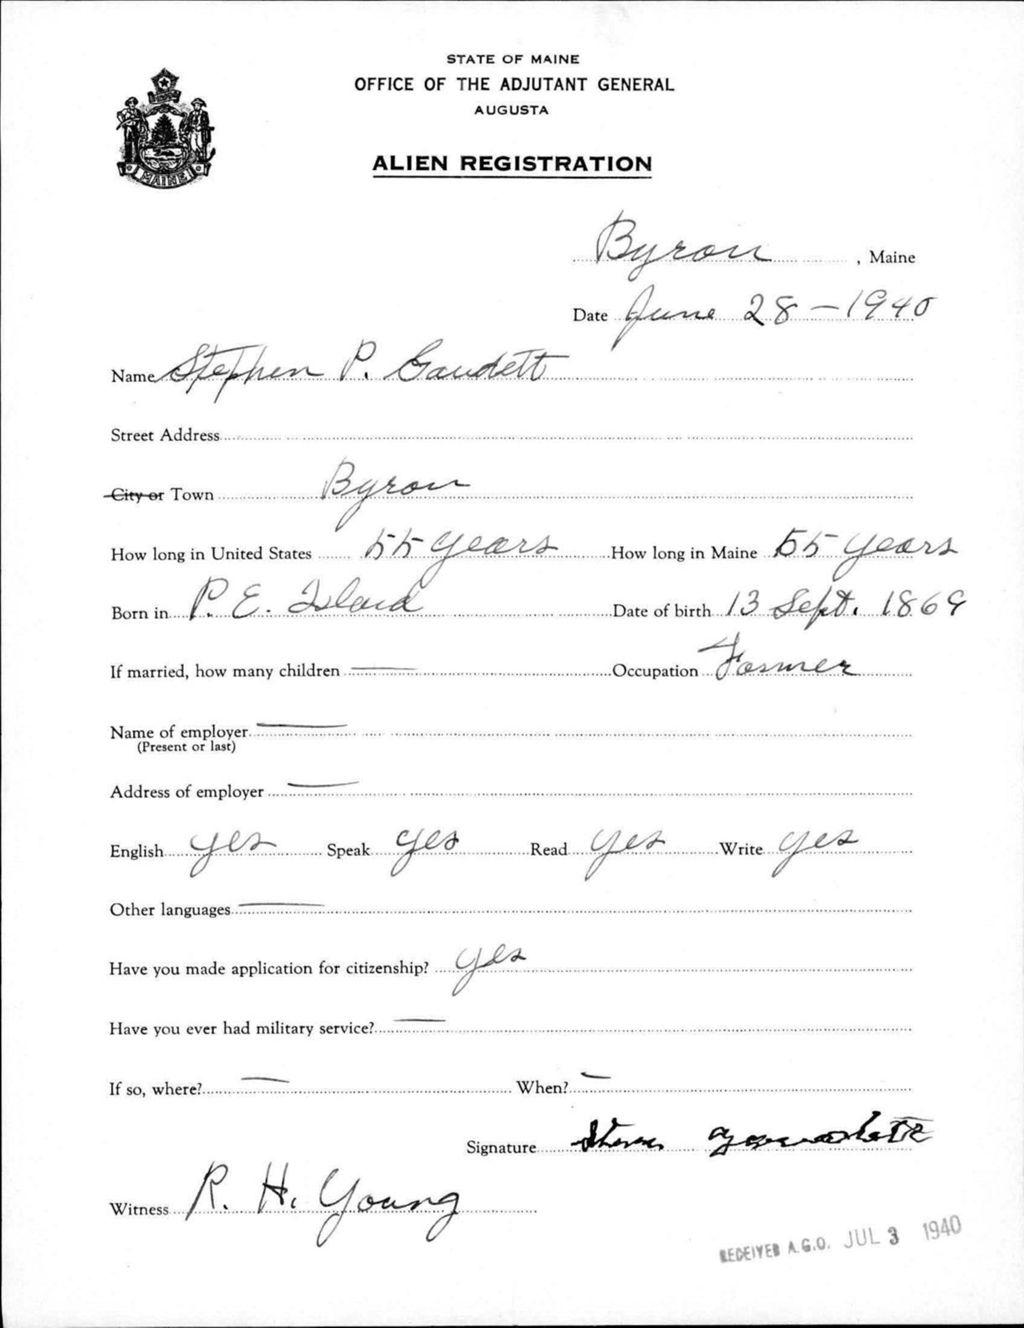 STATE OF MAINE
OFFICE OF THE ADJUTANT GENERAL
AUGUSTA
ALIEN REGISTRATION
MAINE
Byron, Maine
Date June 28-1940
Name Stephen P. Gaudett
Street Address
City or Town Byron
How long in United States 55 years How long in Maine 55 years
Born in P. E. Island Date of birth 13 Sept. 1869
If married, how many children — Occupation Farmer
Name of employer —
(Present or last)
Address of employer —
English yes Speak yes Read yes Write yes
Other languages —
Have you made application for citizenship? yes
Have you ever had military service? —
If so, where? — When? —
Signature
Witness R. H. Young
RECEIVED A.G.O. JUL 3 1940